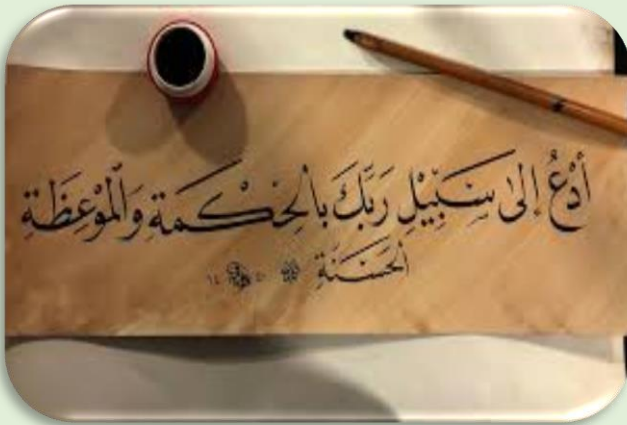 أُدْعُ إِلىٰ سَبِيْلِ رَبِّكَ بِالْحِكْمَةِ وَالْمَوْعِظَةِ
الْحَسَنَةِ